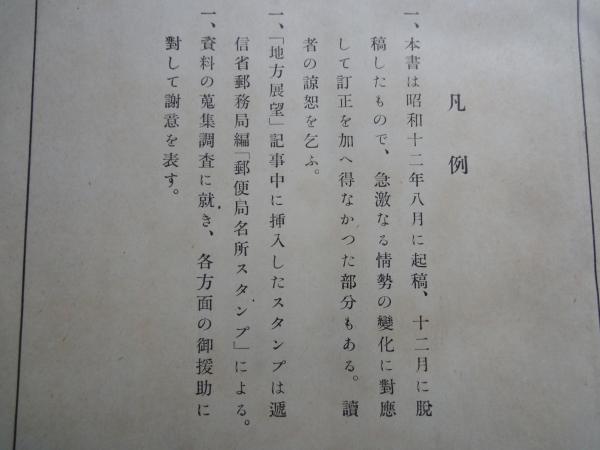 凡例
一、本書は昭和十二年八月に起稿、十二月に脫
稿したもので、急激なる情勢の變化に對應
して訂正を加へ得なかつた部分もある。讀
者の諒恕を乞ふ。
一、「地方展望」記事中に挿入したスタンプは遞
信省郵務局編「郵便局名所スタンプ」による。
一、資料の蒐集調査に就き、各方面の御援助に
對して謝意を表す。